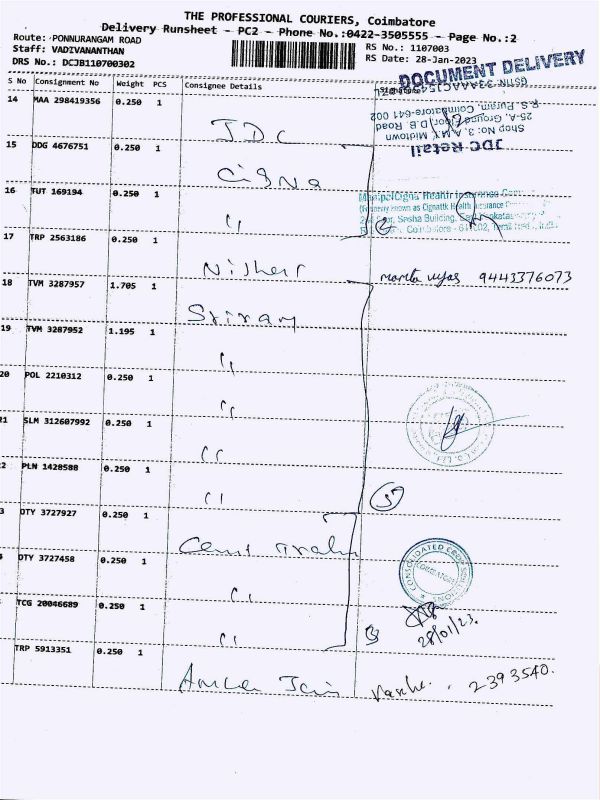 THE PROFESSIONAL COURIERS, Coimbatore
Delivery Runsheet - PC2 - Phone No.:0422-3505555 - Page No.:2
Route: PONNURANGAM ROAD
Staff: VADIVANANTHAN
DRS No.: DCJB110700302
RS No.: 1107003
RS Date: 28-Jan-2023
DOCUMENT DELIVERY
S No Consignment No Weight PCS Consignee Details
JDC Retail
Shop No: 3, Midtown
25-A, Ground Floor, D.B. Road
R.S. Puram, Coimbatore-641 002
14 MAA 298419356 0.250 1 JDC
15 DDG 4676751 0.250 1 Cigna
16 TUT 169194 0.250 1 "
ManipalCigna Health Insurance
(Formerly known as Cignattk Health Insurance
Floor, Srisha Building,
17 TRP 2563186 0.250 1
9443376073
18 TVM 3287957 1.705 1 Sriram
19 TVM 3287952 1.195 1 "
20 POL 2210312 0.250 1 "
21 SLM 312607992 0.250 1 "
2 PLN 1428588 0.250 1 "
5
3 DTY 3727927 0.250 1
DTY 3727458 0.250 1 "
CONSOLIDATED
TCG 20046689 0.250 1 "
28/01/23.
TRP 5913351 0.250 1 Jain
2393540.